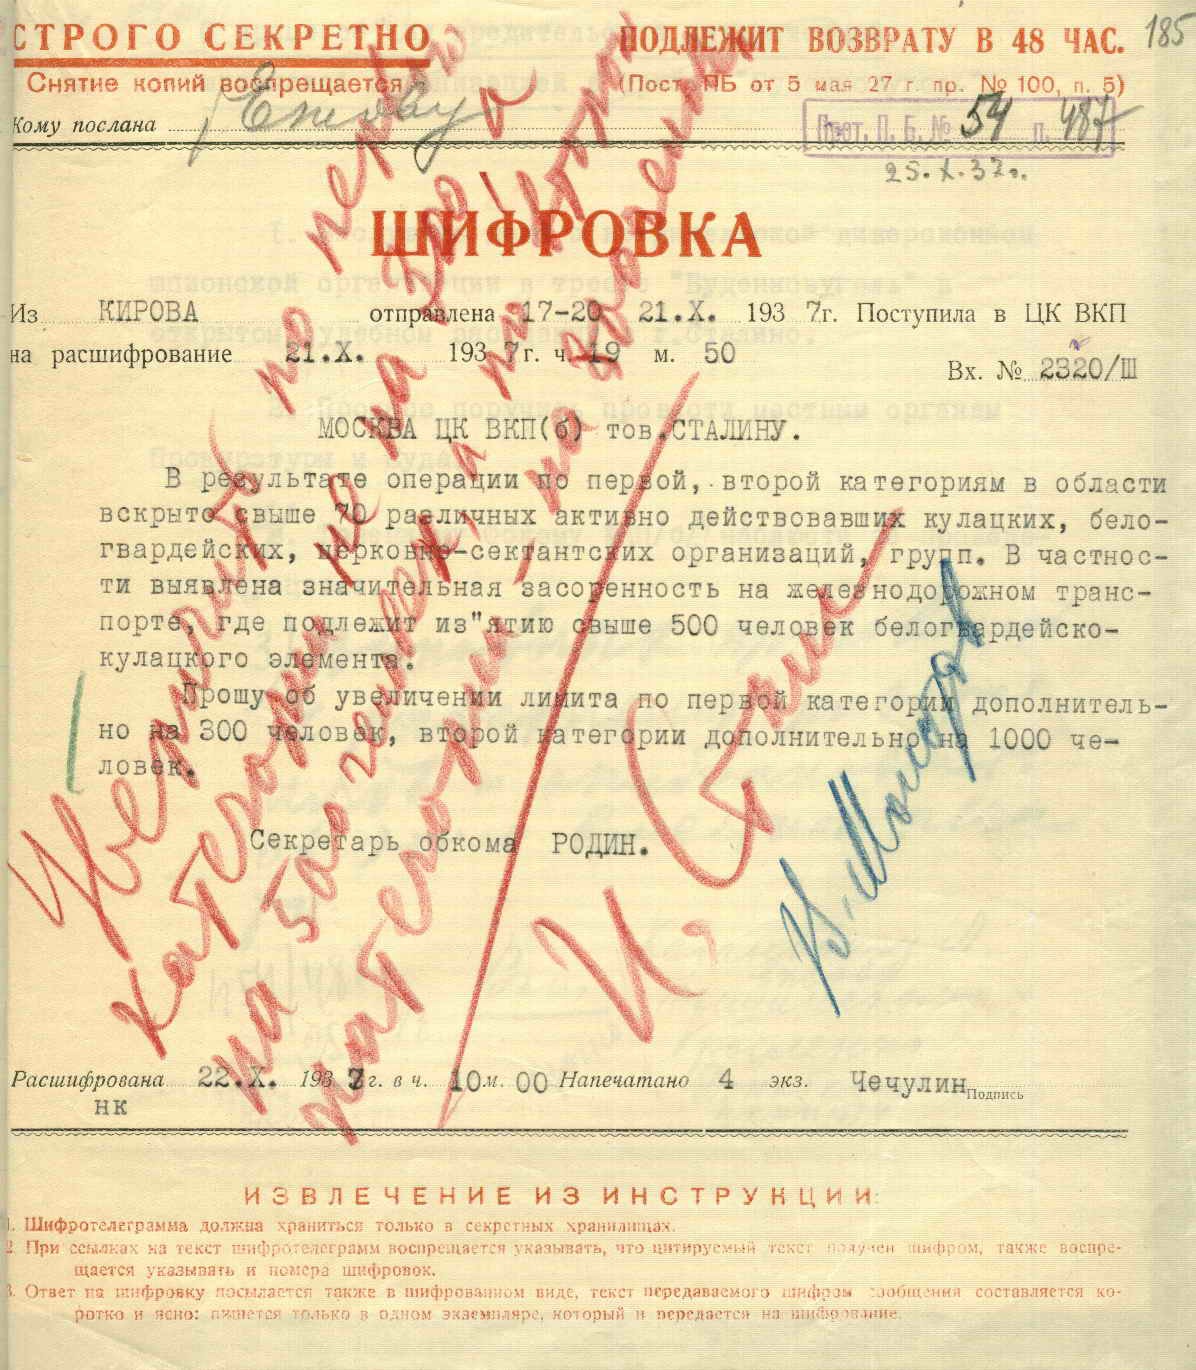 185
СТРОГО СЕКРЕТНО
ПОДЛЕЖИТ ВОЗВРАТУ В 48 ЧАС.
Снятие копий воспрещается
(Пост. ПБ от 5 мая 27 г. пр. № 100, п. 5)
Кому послана Ежову
Прот. П. Б. № 54 п. 487
25.X.37г.
ШИФРОВКА
Из КИРОВА отправлена 17-20 21.X. 1937г. Поступила в ЦК ВКП
на расшифрование 21.X. 1937г. ч. 19 м. 50
Вх. № 2320/Ш
МОСКВА ЦК ВКП(б) тов.СТАЛИНУ.
В результате операции по первой, второй категориям в области
вскрыто свыше 70 различных активно действовавших кулацких, бело-
гвардейских, церковно-сектантских организаций, групп. В частнос-
ти выявлена значительная засоренность на железнодорожном транс-
порте, где подлежит из"ятию свыше 500 человек белогвардейско-
кулацкого элемента.
Прошу об увеличении лимита по первой категории дополнитель-
но на 300 человек, второй категории дополнительно на 1000 че-
ловек.
Секретарь обкома РОДИН.
Увеличить по первой
категории не на 300, а
на 500 человек, а по второй
категории - на 800 человек
И. Сталин
В. Молотов
Расшифрована 22.X. 1937г. в ч. 10 м. 00 Напечатано 4 экз. Чечулин
Подпись
НК
ИЗВЛЕЧЕНИЕ ИЗ ИНСТРУКЦИИ:
1. Шифротелеграмма должна храниться только в секретных хранилищах.
2. При ссылках на текст шифротелеграмм воспрещается указывать, что цитируемый текст получен шифром, также воспре-
щается указывать и номера шифровок.
3. Ответ на шифровку посылается также в шифрованном виде, текст передаваемого шифром сообщения составляется ко-
ротко и ясно: пишется только в одном экземпляре, который и передается на шифрование.